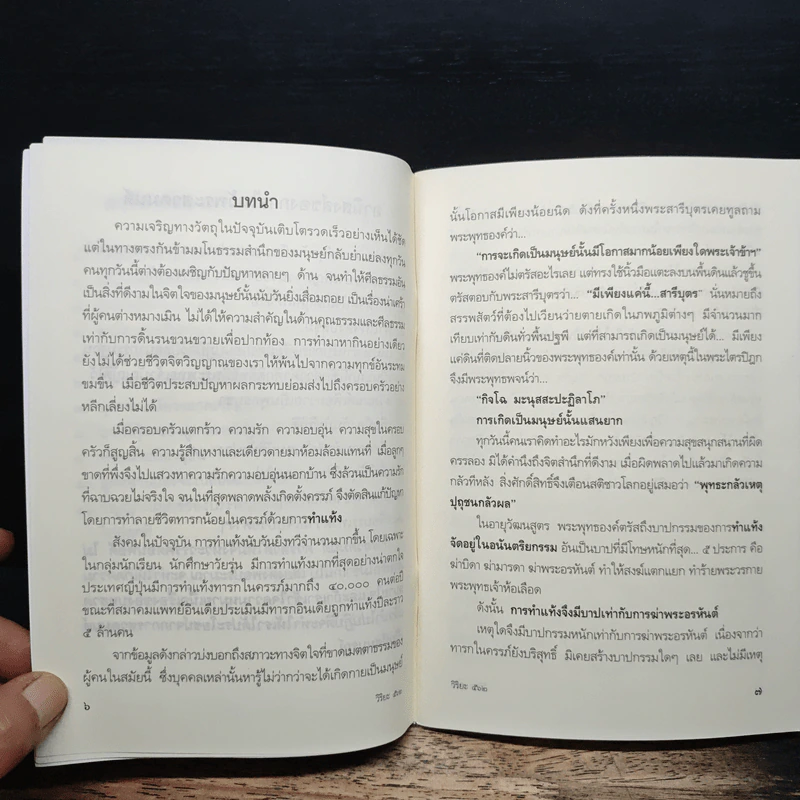 บทนำ
ความเจริญทางวัตถุในปัจจุบันเติบโตรวดเร็วอย่างเห็นได้ชัด
แต่ในทางตรงกันข้ามมโนธรรมสำนึกของมนุษย์กลับย่ำแย่ลงทุกวัน
คนทุกวันนี้ต่างต้องเผชิญกับปัญหาหลายๆ ด้าน จนทำให้ศีลธรรมอัน
เป็นสิ่งที่ดีงามในจิตใจของมนุษย์นั้นนับวันยิ่งเสื่อมถอย เป็นเรื่องน่าเศร้า
ที่ผู้คนต่างหมางเมิน ไม่ได้ให้ความสำคัญในด้านคุณธรรมและศีลธรรม
เท่ากับการดิ้นรนขวนขวายเพื่อปากท้อง การทำมาหากินอย่างเดียว
ยังไม่ได้ช่วยชีวิตจิตวิญญาณของเราให้พ้นไปจากความทุกข์อันระทม
ขมขื่น เมื่อชีวิตประสบปัญหาผลกระทบย่อมส่งไปถึงครอบครัวอย่าง
หลีกเลี่ยงไม่ได้
เมื่อครอบครัวแตกร้าว ความรัก ความอบอุ่น ความสุขในครอบ
ครัวก็สูญสิ้น ความรู้สึกเหงาและเดียวดายมาห้อมล้อมแทนที่ เมื่อลูกๆ
ขาดที่พึ่งจึงไปแสวงหาความรักความอบอุ่นนอกบ้าน ซึ่งล้วนเป็นความรัก
ที่ฉาบฉวยไม่จริงใจ จนในที่สุดพลาดพลั้งเกิดตั้งครรภ์ จึงตัดสินแก้ปัญหา
โดยการทำลายชีวิตทารกน้อยในครรภ์ด้วยการทำแท้ง
สังคมในปัจจุบัน การทำแท้งนับวันยิ่งทวีจำนวนมากขึ้น โดยเฉพาะ
ในกลุ่มนักเรียน นักศึกษาวัยรุ่น มีการทำแท้งมากที่สุดอย่างน่าตกใจ
ประเทศญี่ปุ่นมีการทำแท้งทารกในครรภ์มากถึง ๔๐,๐๐๐ คนต่อปี
ขณะที่สมาคมแพทย์อินเดียประเมินมีทารกอินเดียถูกทำแท้งปีละราว
๕ ล้านคน
จากข้อมูลดังกล่าวบ่งบอกถึงสภาวะทางจิตใจที่ขาดเมตตาธรรมของ
ผู้คนในสมัยนี้ ซึ่งบุคคลเหล่านั้นหารู้ไม่ว่ากว่าจะได้เกิดกายเป็นมนุษย์
๖
วิริยะ ๕๖๒
นั้นโอกาสมีเพียงน้อยนิด ดังที่ครั้งหนึ่งพระสารีบุตรเคยทูลถาม
พระพุทธองค์ว่า...
“การจะเกิดเป็นมนุษย์นั้นมีโอกาสมากน้อยเพียงใดพระเจ้าข้าฯ”
พระพุทธองค์ไม่ตรัสอะไรเลย แต่ทรงใช้นิ้วมือแตะลงบนพื้นดินแล้วชูขึ้น
ตรัสตอบกับพระสารีบุตรว่า... “มีเพียงแค่นี้...สารีบุตร” นั่นหมายถึง
สรรพสัตว์ที่ต้องไปเวียนว่ายตายเกิดในภพภูมิต่างๆ มีจำนวนมาก
เทียบเท่ากับดินทั่วพื้นปฐพี แต่ที่สามารถเกิดเป็นมนุษย์ได้... มีเพียง
แค่ดินที่ติดปลายนิ้วของพระพุทธองค์เท่านั้น ด้วยเหตุนี้ในพระไตรปิฎก
จึงมีพระพุทธพจน์ว่า...
“กิจโฉ มะนุสสะปะฏิลาโภ”
การเกิดเป็นมนุษย์นั้นแสนยาก
ทุกวันนี้คนเราคิดทำอะไรมักหวังเพียงเพื่อความสุขสนุกสนานที่ผิด
ครรลอง มิได้คำนึงถึงจิตสำนึกที่ดีงาม เมื่อผิดพลาดไปแล้วมาเกิดความ
กลัวทีหลัง สิ่งศักดิ์สิทธิ์จึงเตือนสติชาวโลกอยู่เสมอว่า “พุทธะกลัวเหตุ
ปุถุชนกลัวผล”
ในอายุวัฒนสูตร พระพุทธองค์ตรัสถึงบาปกรรมของการทำแท้ง
จัดอยู่ในอนันตริยกรรม อันเป็นบาปที่มีโทษหนักที่สุด... ๕ ประการ คือ
ฆ่าบิดา ฆ่ามารดา ฆ่าพระอรหันต์ ทำให้สงฆ์แตกแยก ทำร้ายพระวรกาย
พระพุทธเจ้าห้อเลือด
ดังนั้น การทำแท้งจึงมีบาปเท่ากับการฆ่าพระอรหันต์
เหตุใดจึงมีบาปกรรมหนักเท่ากับการฆ่าพระอรหันต์ เนื่องจาก
ทารกในครรภ์ยังบริสุทธิ์ มิเคยสร้างบาปกรรมใดๆ เลย และไม่มีเหตุ
วิริยะ ๕๖๒
๗